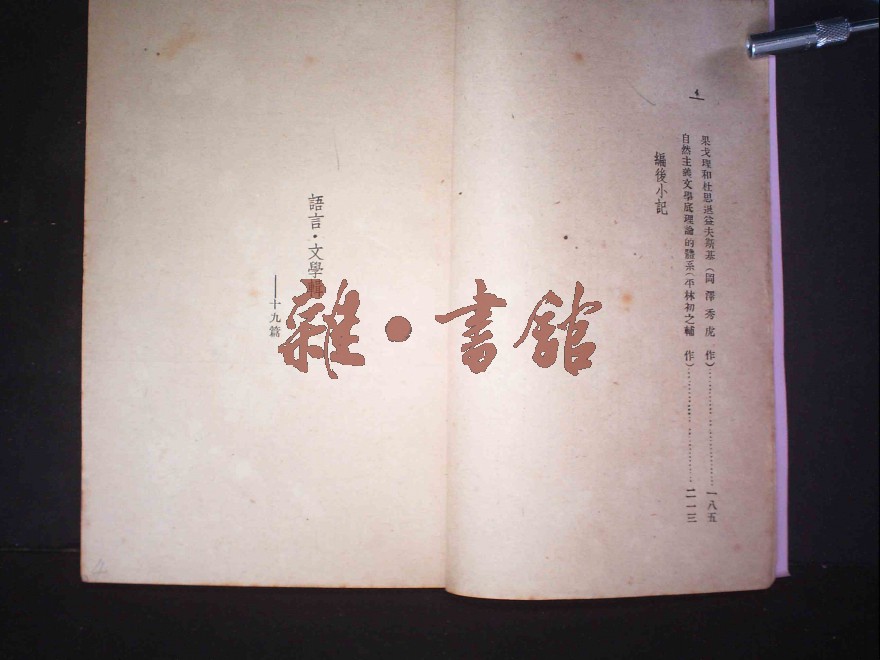 4
果戈理和杜思退益夫斯基（岡澤秀虎 作）……………………一八五
自然主義文學底理論的體系（平林初之輔 作）……………………二一三
編後小記
語言·文學輯
——十九篇
雜·書館